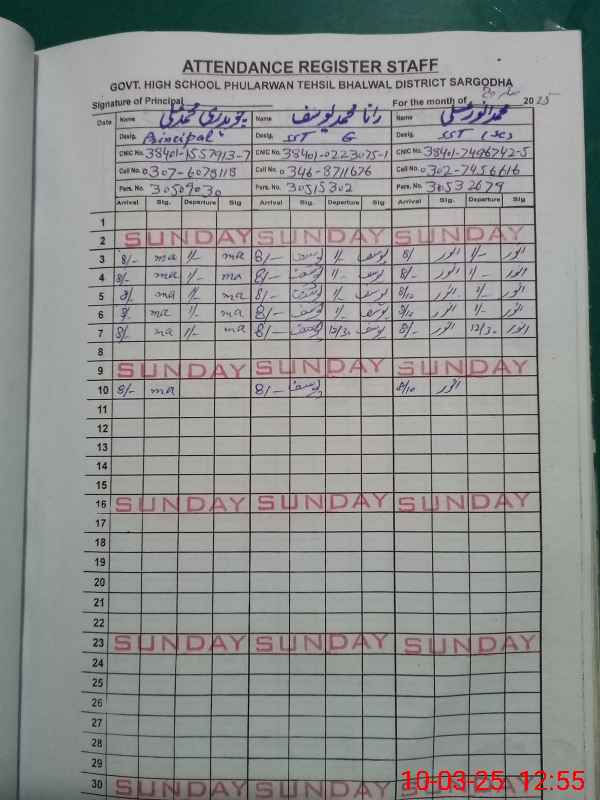 ATTENDANCE REGISTER STAFF
GOVT. HIGH SCHOOL PHULARWAN TEHSIL BHALWAL DISTRICT SARGODHA
Signature of Principal For the month of مارچ 2025
Date Name چوہدری محمد علی Name رانا محمد یوسف Name محمد انور
Desig. Principal Desig. SST G Desig. SST (Sc)
CNIC No. 38401-1557913-7 CNIC No. 38401-0223075-1 CNIC No. 38401-7496742-5
Cell No. 0307-6078118 Cell No. 0346-8711676 Cell No. 0302-7456616
Pers. No. 30509030 Pers. No. 30515302 Pers. No. 30532679
Arrival Sig. Departure Sig Arrival Sig. Departure Sig Arrival Sig. Departure Sig
1
2 SUNDAY SUNDAY SUNDAY
3 8/- ma 1/- ma 8/- یوسف 1/- یوسف 8/ انور 1/- انور
4 8/- ma 1/- ma 8/- یوسف 1/- یوسف 8/- انور 1/- انور
5 8/ ma 1/- ma 8/- یوسف 1/- یوسف 8/10 انور 1/- انور
6 8/- ma 1/- ma 8/- یوسف 1/- یوسف 8/10 انور 1/- انور
7 8/- ma 1/- ma 8/- یوسف 12/30 یوسف 8/- انور 12/30 انور
8
9 SUNDAY SUNDAY SUNDAY
10 8/- ma 8/- یوسف 8/10 انور
11
12
13
14
15
16 SUNDAY SUNDAY SUNDAY
17
18
19
20
21
22
23 SUNDAY SUNDAY SUNDAY
24
25
26
27
28
29
30 SUNDAY SUNDAY SUNDAY
10-03-25 12:55